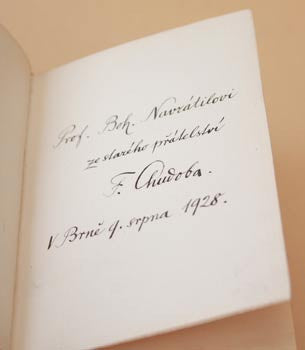 Prof. Boh. Navrátilovi
ze starého přátelství
F. Chudoba.
V Brně 9. srpna 1928.